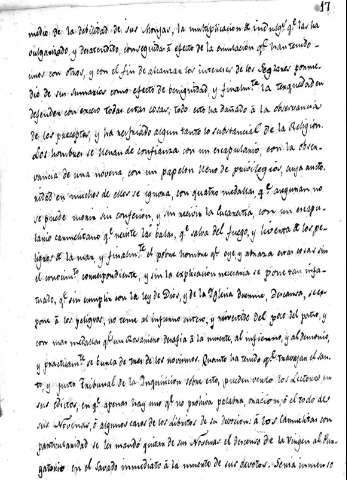 17
medio de la debilidad de sus Monjas, la multiplicacion de indulg.s q.e las ha
vulgarizado, y desatendido, conseguida à efecto de la emulacion q.e han tenido
unos con otros, y con el fin de alcanzar los intereses de los Seglares por me-
dio de sus sumarios como efecto de benignidad, y finalm.te la terquedad en
defender con exceso todas estas cosas; todo esto ha dañado à la observancia
de los preceptos, y ha resfriado algun tanto lo substancial de la Religion.
Los hombres se llenan de confianza con un escapulario, con la obser-
vancia de una novena con un papelon lleno de privilegios, cuya auto-
ridad en muchos de ellos se ignora, con quatro medallas q.e aseguran no
se puede morir sin confesion, y sin recivir la Eucaristia, con un escapu-
lario carmelitano q.e resiste las balas, q.e salva del fuego, y liverta de los pe-
ligros de la mar, y finalm.te el pobre hombre q.e oye, y abraza estas cosas sin
el conocim.to correspondiente, y sin la explicacion necesaria se pone tan infa-
tuado, q.e sin cumplir con la ley de Dios, y de la Iglesia duerme, descansa, se ex-
pone à los peligros, no teme al infierno entero, y revestido del peto del paño, y
con mas medallas q.e un Rosariero desafia à la muerte, al infierno, y al demonio,
y practicam.te se burla de tres de los novisimos. Quanto ha tenido q.e travajar el san-
to, y justo Tribunal de la Inquisicion sobre esto, pueden verlo los Lectores en
sus edictos, en q.e apenas hay uno q.e no prohiva palabra, oracion, ó el todo de
sus Novenas, ó algunas cosas de los libritos de su devocion: à los Carmelitas con
particularidad se les mandó quitar de sus Novenas el descenso de la Virgen al Pur-
gatorio en el Savado inmediato à la muerte de sus devotos. Seria inmenso